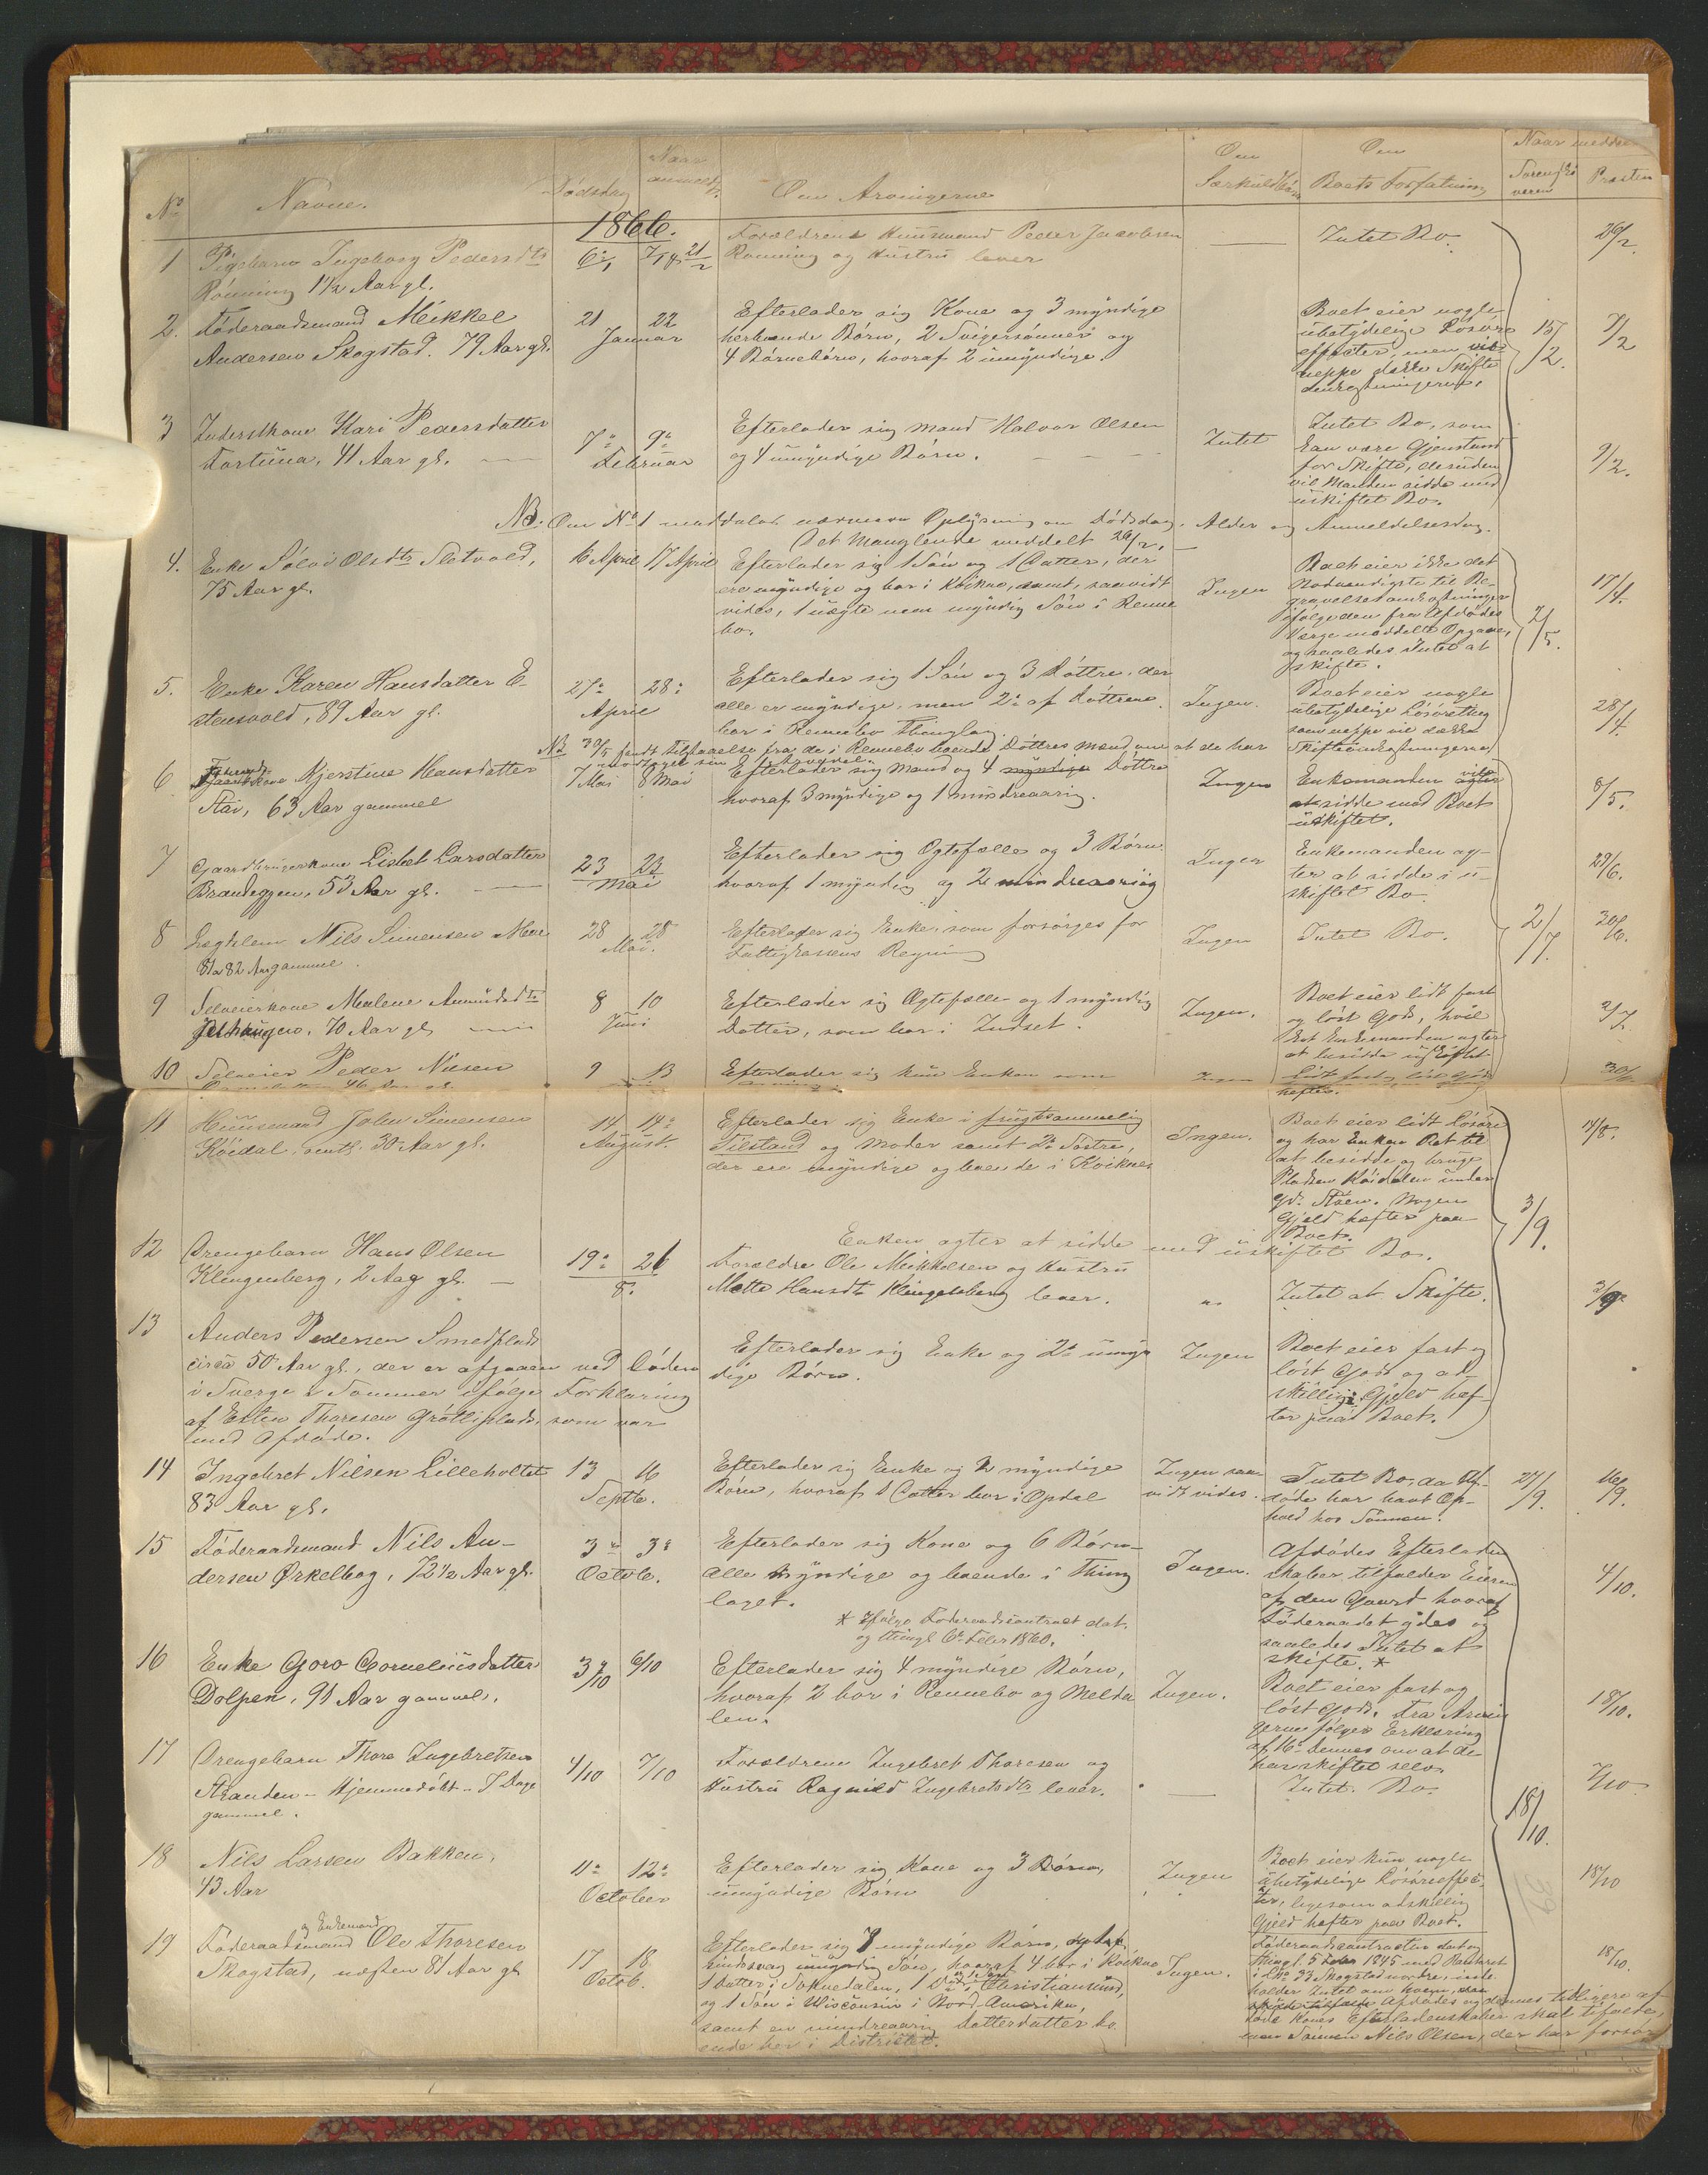 Nº Navne. Dødsdag Naar anmeldt. Om Arvingerne Om Særkuldbørn Om Boets Forfatning Naar meddelt
Sorenskriveren Præsten
1866.
1 Pigebarn Ingeborg Pedersdtr 6/1 21/2 Forældrene Huusmand Peder Jacobsen Intet Bo. 26/2.
Rønning 1 1/2 Aar gl. Rønning og Hustru lever
2. Føderaadsmand Mikkel 21 22 Efterlader sig Kone og 3 myndige Boet eier nogle
Andersen Skogstad. 79 Aar gl. Januar herboende Børn, 2 Svigersønner og ubetydelige Løsøre 15/2. 7/2
4 Børnebørn, hvoraf 2 umyndige. effecter, men vil
neppe dække Skifte
omkostningerne.
3 Inderstkone Kari Pedersdatter 7de 9de Efterlader sig Mand Halvor Olsen Intet Intet Bo, som
Fortuna, 41 Aar gl. Februar og 4 umyndige Børn. kan være Gjenstand 9/2.
for Skifte, desuden
vil Manden sidde med
uskiftet Bo.
NB. Om Nº 1 meddeles nærmere Oplysning om Dødsdag, Alder og Anmeldelsesdag.
Det Manglende meddelt 26/2.
4. Enke Sølvi Olsdtr Sletvold, 6 April 17 April Efterlader sig 1 Søn og 1 Datter, der Ingen Boet eier ikke det 17/4.
75 Aar gl. ere myndige og bor i Kvikne, samt, saavidt nødvendigste til Be-
vides, 1 uægte men myndig Søn i Renne gravelsesomkostninger
bo. ifølge den fra Afdødes 2/5.
Værge meddelte Opgave,
og saaledes Intet at
skifte.
5. Enke Karen Hansdatter E- 27de 28de Efterlader sig 1 Søn og 3 Døttre, der Ingen. Boet eier nogle 28/4.
stensvold, 89 Aar gl. April alle er myndige, men 2de af Døttrene ubetydelige Løsøreting
bor i Rennebo Thinglag. som neppe vil dække
NB 30/5 sendt Tilstaaelse fra de i Rennebo boende Døttres Mænd om at de har Skifteomkostningerne.
modtaget sin Arvedel.
6 Kjerstine Hansdatter 7 Mai 8 Mai Efterlader sig Mand og 4 Døttre Ingen Enkemanden vil 8/5.
Stai, 63 Aar gammel hvoraf 3 myndige og 1 mindreaarig. sidde med Boet
uskiftet.
7 Gaardbrugerkone Lisbet Larsdatter 23 23 Efterlader sig Egtefælle og 3 Børn Ingen Enkemanden ag- 29/6.
Brandeggen, 53 Aar gl. Mai hvoraf 1 myndig og 2 mindreaarig ter at sidde i u-
skiftet Bo.
8 Lægslem Nils Simensen Moe 28 28 Efterlader sig Enke, som forsørges for Ingen Intet Bo. 2/7. 30/6.
81 a 82 Aar gammel. Mai. Fattigkassens Regning
9 Selveierkone Malene Amundsdtr 8 10 Efterlader sig Ægtefælle og 1 myndig Ingen. Boet eier lidt fast
70 Aar gl. Juni Datter, som bor i Indset. og løst Gods, hvil 2/7.
ket Enkemanden agter
at besidde uskiftet
10 Selveier Peder Nilsen 9 13 Efterlader sig kun Enken som Ingen
hefter.
11 Huusmand John Simensen 14 14de Efterlader sig Enke i frugtsommelig Ingen. Boet eier lidt Løsøre 14/8.
Køidal, omtr. 30 Aar gl. August. Tilstand og Moder samt 2de Søstre, og har Enken Ret til
der ere myndige og boende i Kvikne at besidde og bruge
Pladsen Køidalen under
Gd. Steen. Nogen
Gjæld hefter paa
Boet. 3/9.
Enken agter at sidde med uskiftet Bo.
12 Drengebarn Hans Olsen 19de 26 Forældre Ole Mikkelsen og Hustru
Klingenberg, 2 Aar gl. 8. Mette Hansdtr Klingenberg lever. " Intet at Skifte. 3/9
13 Anders Pedersen Smedplads Efterlader sig Enke og 2de umyn Ingen Boet eier fast og
circa 50 Aar gl., der er afgaaen ved Døden dige Børn. løst Gods og ad-
i Sverge i Sommer ifølge Forklaring skillig Gjeld hef-
af Esten Thoresen Grøtliplads, som var ter paa Boet.
med Afdøde.
14 Ingebret Nilsen Lilleholtet 13 16 Efterlader sig Enke og 2 myndige Ingen saa Intet Bo, da Af- 27/9. 16/9.
83 Aar gl. Septb. Børn, hvoraf 1 Datter bor i Opdal vidt vides. døde har havt Op-
hold hos Sønnen.
15 Føderaadsmand Nils An- 3de 3de Efterlader sig Kone og 6 Børn Ingen. Afdødes Efterladen
dersen Ørkelbog, 72 1/2 Aar gl. Octob. alle myndige og boende i Thing skaber tilfalder Eieren 4/10.
laget. af den Gaard hvoraf
* Ifølge Føderaadscontract dat. Føderaadet ydes og
og thingl. 6te Febr 1860. saaledes Intet at
skifte. *
16 Enke Goro Corneliusdatter 3/10 6/10 Efterlader sig 4 myndige Børn, Ingen. Boet eier fast og 18/10.
Dolpen, 91 Aar gammel. hvoraf 2 bor i Rennebo og Melda løst Gods. Fra Arvin
len. gerne følger Erklæring
af 16de Dennes om at de
har skiftet selv.
17 Drengebarn Thore Ingebretsen 4/10 7/10 Forældrene Ingebret Thoresen og Intet Bo. 7/10
Stranden – Hjemmedøbt – 8 Dage Hustru Ragnild Ingebretsdtr lever.
gammel. 18/10.
18 Nils Larsen Bakken, 11te 12te Efterlader sig Kone og 3 Børn, Ingen Boet eier kun nogle 18/10
43 Aar October umyndige Børn ubetydelige Løsøreeffec-
ter, ligesom adskillig
Gjeld hefter paa Boet.
19 Føderaadsmand og Enkemand Ole Thoresen 17 18 Efterlader sig 7 myndige Børn, Ingen. Føderaadscontracten dat. og 18/10.
Skogstad, næsten 81 Aar gl Octob. sindssvag Søn, hvoraf 4 bor i Kvikne thingl. 1845 med
1 Datter i Soknedalen, 1 Christiansund, i LNo 33 Skogstad nordre, inde
og 1 Søn i Wisconsin i Nord-Amerika, holder Intet om
samt en mindreaarig Datterdatter bo Afdødes og dennes tidligere af
ende her i Districtet. døde Kones Efterladenskaber skal tilfalde,
men Sønnen Nils Olsen, der har forsør